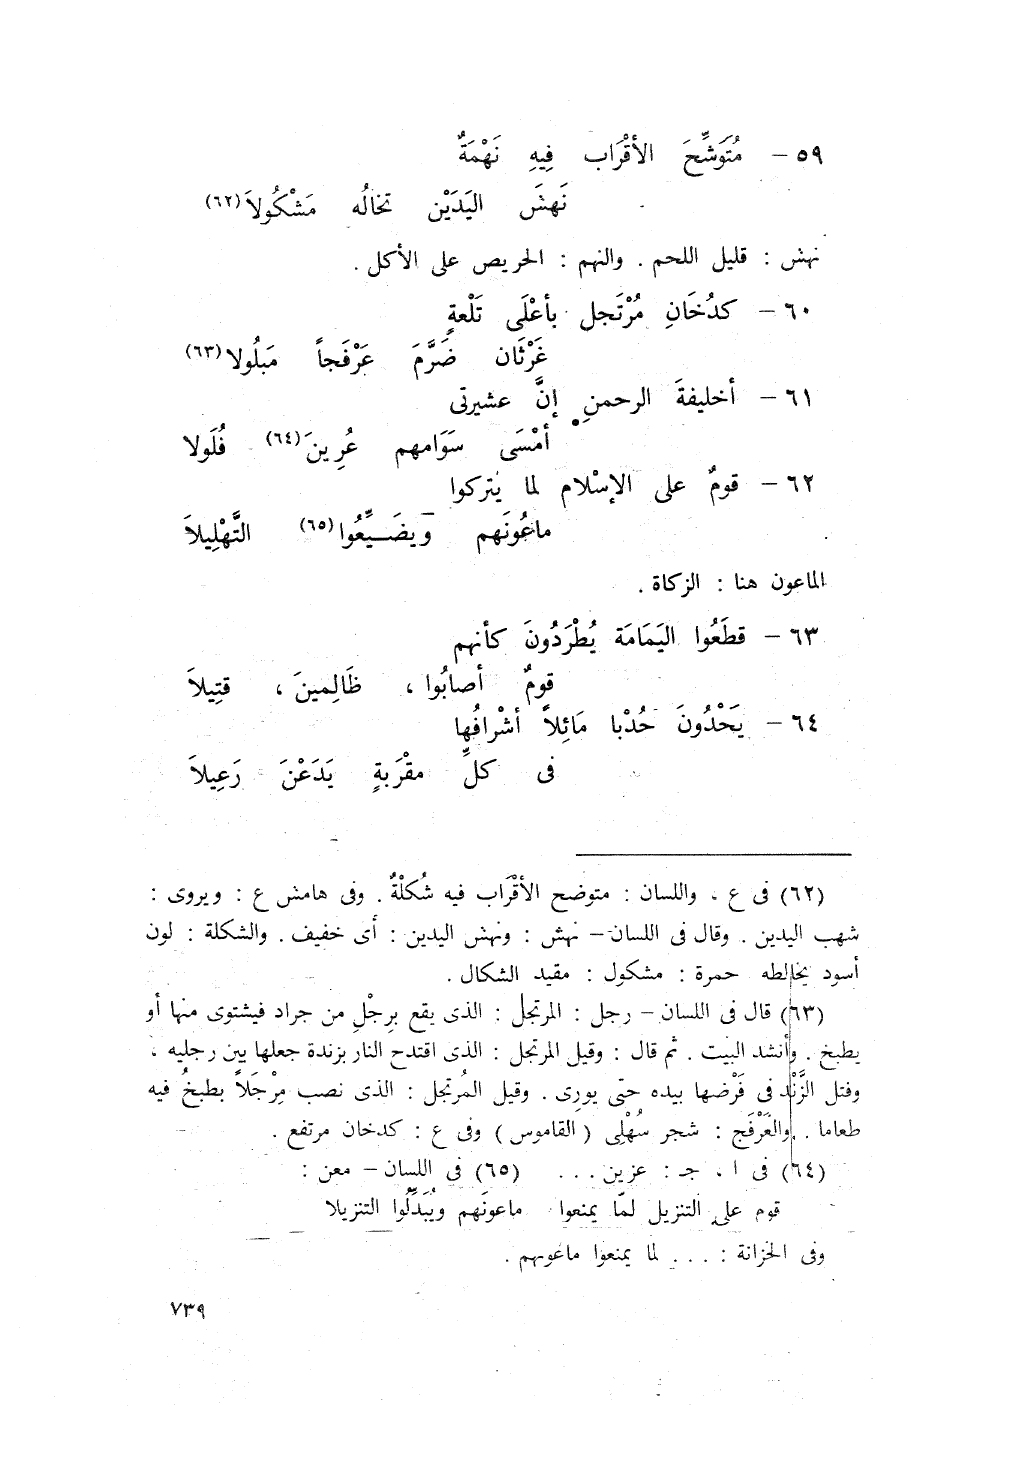 ٥٩ – مُتَوَشِّحَ الأقْرَاب فِيهِ نَهْمَةٌ
نَهشَ اليَدَيْن تخالُه مَشْكُولاَ (٦٢)
نهش : قليل اللحم . والنهم : الحريص على الأكل .
٦٠ – كدُخَانِ مُرْتَجل بأعْلَى تَلْعةٍ
غَرْثَان ضَرَّمَ عَرْفَجاً مَبلُولا (٦٣)
٦١ – أخليفةَ الرحمنِ إنَّ عشيرتى
أمْسَى سَوَامهم عُرِينَ (٦٤) فُلَولا
٦٢ – قومٌ على الإسْلام لما يَتركوا
ماعُونَهم وَيضَـيِّعُوا (٦٥) التَّهْلِيلاَ
الماعون هنا : الزكاة .
٦٣ – قطَعُوا اليَمَامَة يُطْرَدُونَ كأنهم
قومٌ أصابُوا ، ظَالِمينَ ، قتِيلاَ
٦٤ – يَحْدُونَ حُدْبا مَائِلاً أشْرافُها
فى كلِّ مقْرَبةٍ يَدَعْنَ رَعِيلاَ
(٦٢) فى ع ، واللسان : متوضح الأقْرَاب فيه شُكلْةٌ . وفى هامش ع : ويروى :
شهب اليدين . وقال فى اللسان – نهش : ونهش اليدين : أى خفيف . والشكلة : لون
أسود يخالطه حمرة : مشكول : مقيد الشكال .
(٦٣) قال فى اللسان – رجل : المرتجل : الذى يقع بِرِجْلِ من جراد فيشتوى منها أو
يطبخ . وأنشد البيت . ثم قال : وقيل المرتجل : الذى اقتدح النار بزندة جعلها بين رجليه ،
وفتل الزَّنْد فى فَرْضها بيده حتى يورِى . وقيل المُرتجل : الذى نصب مِرْجَلاً يطبخُ فيه
طعاما . والعَرْفَج : شجر سُهْلِى ( القاموس ) وفى ع : كدخان مرتفع .
(٦٤) فى ا ، جـ : عزين ... (٦٥) فى اللسان – معن :
قوم على التنزيل لمّا يمنعوا ماعونَهم ويُبَدِّلُوا التنزيلا
وفى الخزانة : ... لما يمنعوا ماعونهم .
٧٣٩